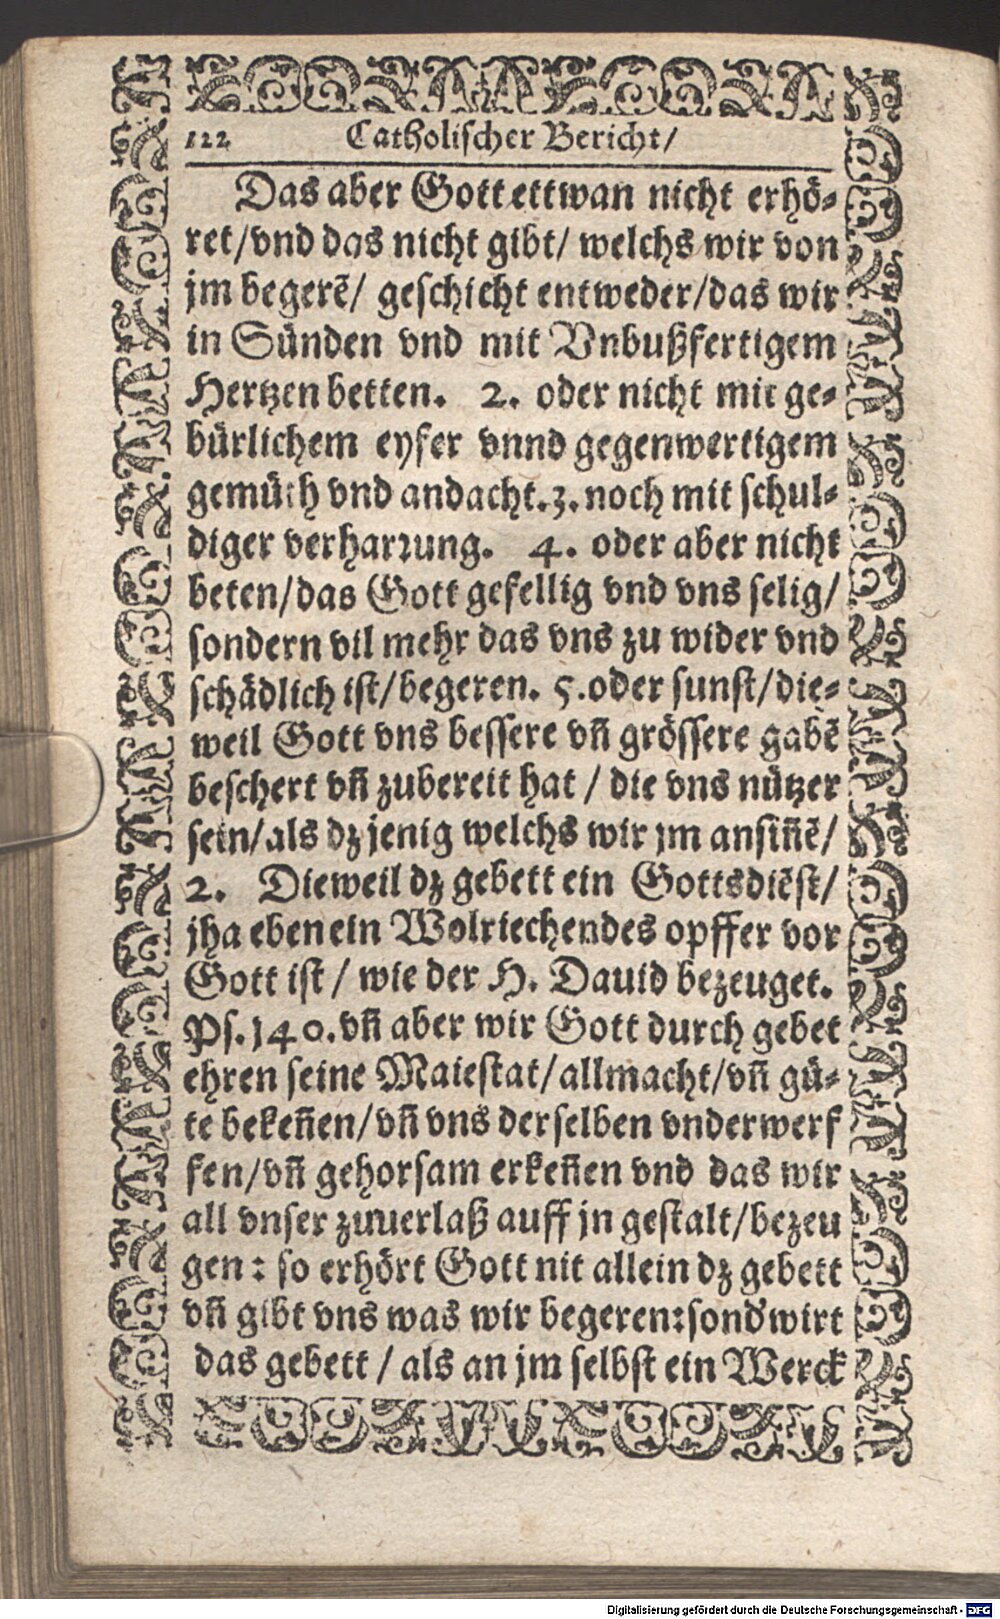 122 Catholischer Bericht/
Das aber Gott ettwan nicht erhö-
ret/vnd das nicht gibt/ welchs wir von
jm begerẽ/ geschicht entweder/das wir
in Sünden vnd mit Vnbußfertigem
Hertzen betten. 2. oder nicht mit ge-
bürlichem eyfer vnnd gegenwertigem
gemüth vnd andacht.3. noch mit schul-
diger verharꝛung. 4. oder aber nicht
beten/das Gott gefellig vnd vns selig/
sondern vil mehr das vns zu wider vnd
schädlich ist/begeren. 5.oder sunst/die-
weil Gott vns bessere vñ grössere gabẽ
beschert vñ zubereit hat / die vns nützer
sein/als dz jenig welchs wir jm ansiñẽ/
2. Dieweil dz gebett ein Gottsdiẽst/
jha eben ein Wolriechendes opffer vor
Gott ist / wie der H. Dauid bezeuget.
Ps.140.vñ aber wir Gott durch gebet
ehren seine Maiestat/allmacht/vñ gü-
te bekeñen/vñ vns derselben vnderwerf
fen/vñ gehorsam erkeñen vnd das wir
all vnser zuuerlaß auff jn gestalt/bezeu
gen: so erhört Gott nit allein dz gebett
vñ gibt vns was wir begeren:sond'wirt
das gebett / als an jm selbst ein Werck
Digitalisierung gefördert durch die Deutsche Forschungsgemeinschaft - DFG